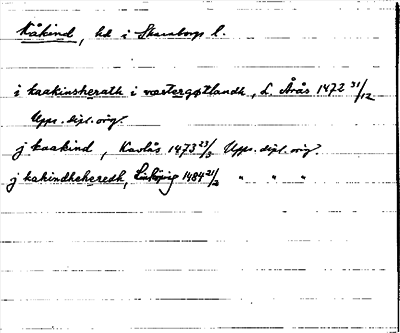 Kåkind, hd i Skaraborgs l.
i kaakinsherath i væstergøtlandh, L. Årås 1472 31/12
Upps. dipl. orig.
j kaakind, Kavlås 1473 23/3 Upps. dipl. orig.
j kakindhsheredh, Linköping 1484 21/2 " " "